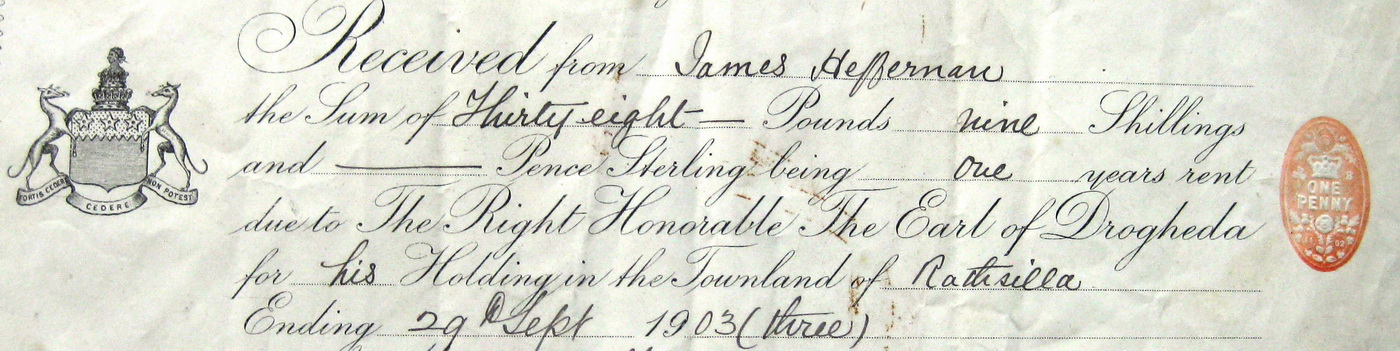 Received from James Heffernan
the Sum of Thirty eight — Pounds nine Shillings
and ——— Pence Sterling being one years rent
due to The Right Honorable The Earl of Drogheda
for his Holding in the Townland of Rathsilla
Ending 29th Sept 1903 (three)
FORTIS CEDERE
CEDERE
NON POTEST
ONE
PENNY